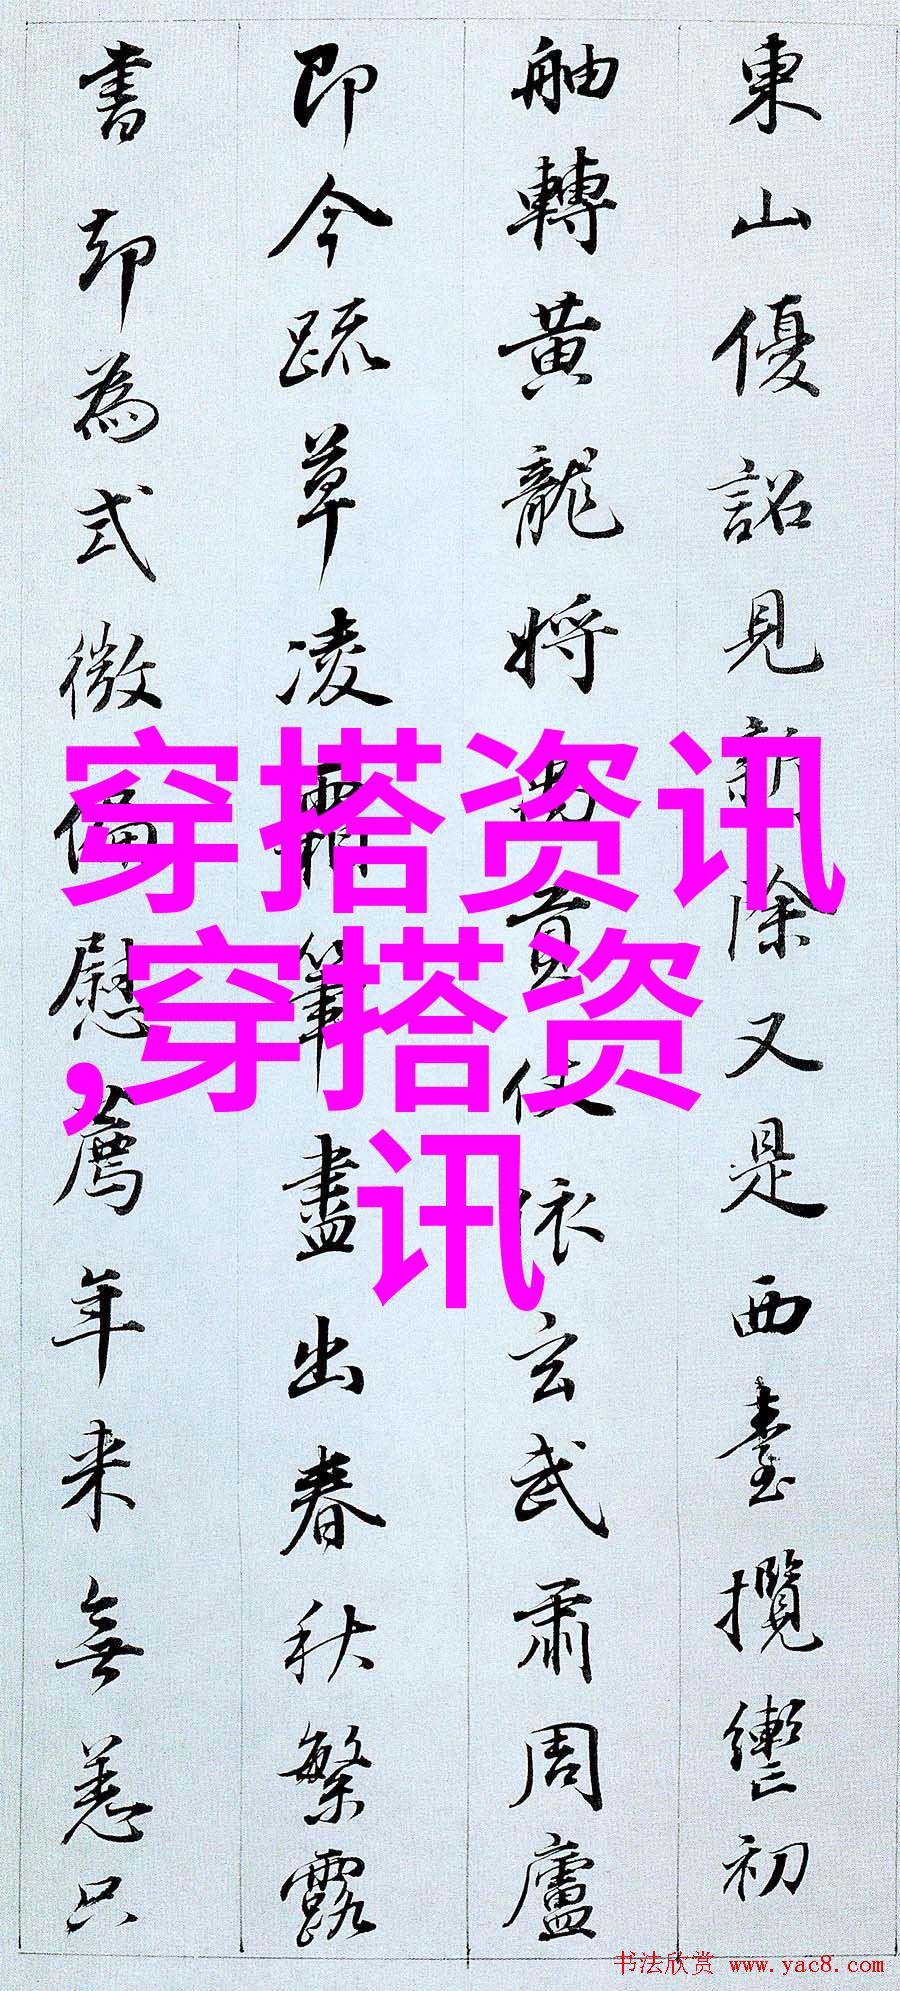 東山優詔見新除又是西臺攬轡初
舳轉黃龍將禹貢仗依玄武肅周廬
即今疏草凌霜筆盡出春秋繁露
書却為式微偏慰薦年來無恙只
穿搭资讯
,穿搭资
讯
书法欣赏 www.yac8.com